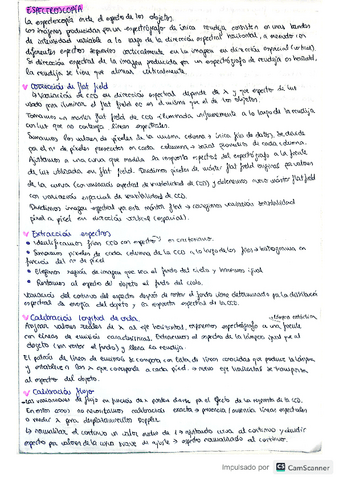 ESPECTROSCOPÍA
La espectroscopía mide el espectro de los objetos.
Las imágenes producidas por un espectrógrafo de única rendija consisten en una banda
de intensidad variable a lo largo de la dirección espectral horizontal, a menudo con
diferentes espectros separados verticalmente en la imagen en dirección espacial (vertical).
Si dirección espectral de la imagen producida por un espectrógrafo de rendija es horizontal,
la rendija se tiene que alinear verticalmente.
Corrección de flat field
variación de CCD en dirección espectral depende de λ y por espectro de luz
usada para iluminar el flat field no es el mismo que el de los objetos.
Tomamos un máster flat field de CCD iluminada uniformemente a lo largo de la rendija
con luz que no contenga líneas espectrales.
Sumamos los valores de píxeles de la misma columna
por el nº de píxeles presentes en cada columna, promedio de cada columna.
Ajustamos a una curva que modela la respuesta espectral del espectrógrafo a la fuente
de luz utilizada en flat field. Dividimos píxeles de máster flat field original por valores
de la curva (con variación espectral de sensibilidad de CCD) y obtenemos nuevo máster flat field
con variación espacial de sensibilidad de CCD.
Dividimos imagen espectral por este máster flat y corregimos variación sensibilidad
píxel a píxel en dirección vertical (espacial).
Extracción espectros
Identificamos filas CCD con espectro
Sumamos píxeles de cada columna de la CCD a lo largo de las filas
función del nº de píxel
Elegimos región de imagen que sea el fondo del cielo y hacemos igual
Restamos al espectro del objeto el fondo del cielo.
Variación del continuo del espectro después de restar el fondo viene determinada por la distribución
espectral de energía del objeto y la respuesta espectral de la CCD.
Calibración longitud de onda
Asignar valores reales de λ al eje horizontal, exponemos espectrógrafo a una fuente
con líneas de emisión características. Extraemos el espectro de la lámpara igual que el
objeto (sin restar el fondo) y llena la rendija.
El patrón de líneas de emisión se compara con lista de líneas conocidas que produce la lámpara
y establece λ que corresponde a cada píxel → nuevo eje horizontal se transporta
al espectro del objeto.
Calibración flujo
Las variaciones de flujo en función de λ por el efecto de la respuesta de la CCD.
En estos casos no necesitamos calibración exacta presencia/ausencia líneas espectrales
o medir λ para desplazamientos Doppler.
normalizar el continuo un valor medio de 1 → ajustando curva al continuo y dividir
espectro por valores de la curva suave de ajuste → espectro normalizado al continuo.
Impulsado por CS CamScanner